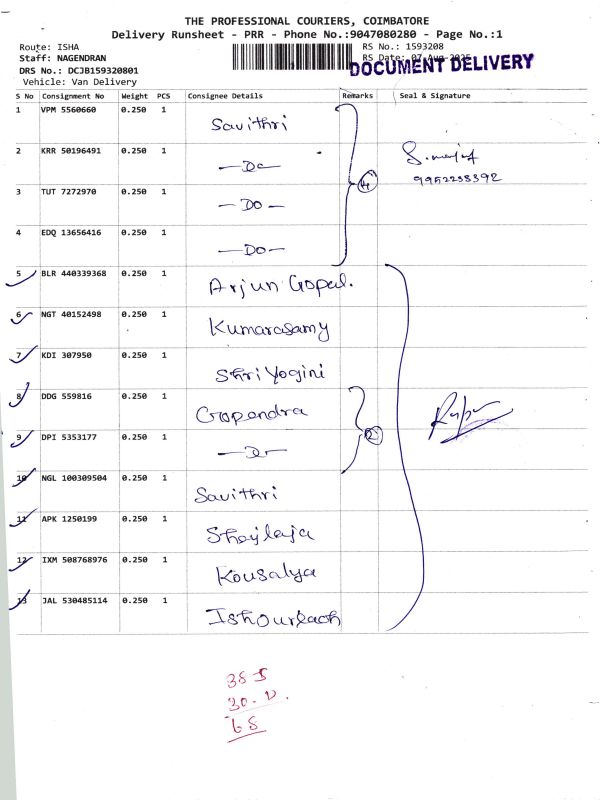 THE PROFESSIONAL COURIERS, COIMBATORE
Delivery Runsheet - PRR - Phone No.:9047080280 - Page No.:1
Route: ISHA
RS No.: 1593208
Staff: NAGENDRAN
RS Date: 07-Aug-2025
DOCUMENT DELIVERY
DRS No.: DCJB159320801
Vehicle: Van Delivery
S No Consignment No Weight PCS Consignee Details Remarks Seal & Signature
1 VPM 5560660 0.250 1 Savithri
2 KRR 50196491 0.250 1 — Do —
9952238392
3 TUT 7272970 0.250 1 — DO — 4
4 EDQ 13656416 0.250 1 — DO —
5 BLR 440339368 0.250 1 Arjun Gopal.
6 NGT 40152498 0.250 1 Kumarasamy
7 KDI 307950 0.250 1 Shri Yogini
8 DDG 559816 0.250 1 Gopendra
9 DPI 5353177 0.250 1 2
10 NGL 100309504 0.250 1 Savithri
11 APK 1250199 0.250 1 Shejlaja
12 IXM 508768976 0.250 1 Kousalya
13 JAL 530485114 0.250 1
68